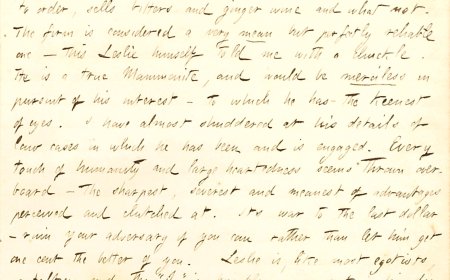 to order, sells bitters and ginger wine and what not.
The firm is considered a very mean but perfectly reliable
one — this Leslie himself told me with a chuckle.
He is a true Mammonite, and would be merciless in
pursuit of his interest — to which he has the keenest
of eyes. I have almost shuddered at his details of
law cases in which he has been and is engaged. Every
touch of humanity and large heartedness seems thrown over-
board — The sharpest, severest and meanest of advantages
perceived and clutched at. It's war to the last dollar
— ruin your adversary if you can rather than let him get
one cent the better of you. Leslie is, like most egotists,